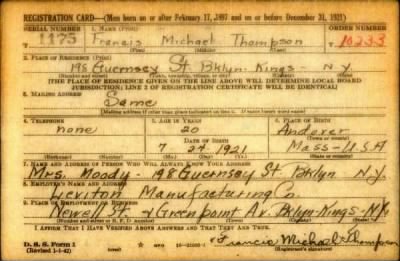 REGISTRATION CARD—(Men born on or after February 17, 1897 and on or before December 31, 1921)
SERIAL NUMBER 1. NAME (Print) ORDER NUMBER
1175 Francis Michael Thompson 10233
(First) (Middle) (Last)
2. PLACE OF RESIDENCE (Print)
198 Guernsey St. Bklyn-Kings-N.Y.
(Number and street) (Town, township, village, or city) (County) (State)
[THE PLACE OF RESIDENCE GIVEN ON THE LINE ABOVE WILL DETERMINE LOCAL BOARD
JURISDICTION; LINE 2 OF REGISTRATION CERTIFICATE WILL BE IDENTICAL]
3. MAILING ADDRESS
Same
[Mailing address if other than place indicated on line 2. If same insert word same]
4. TELEPHONE 5. AGE IN YEARS 6. PLACE OF BIRTH
none 20 Andover
DATE OF BIRTH
7 24 1921 Mass-U.S.A
(Mo.) (Day) (Yr.)
7. NAME AND ADDRESS OF PERSON WHO WILL ALWAYS KNOW YOUR ADDRESS
Mrs. Moody-198 Guernsey St. Bklyn N.Y.
8. EMPLOYER'S NAME AND ADDRESS
Leviton Manufacturing Co
9. PLACE OF EMPLOYMENT OR BUSINESS
Newell St. & Greenpoint Av. Bklyn-Kings-N.Y.
(Number and street or R. F. D. number) (Town) (County) (State)
I AFFIRM THAT I HAVE VERIFIED ABOVE ANSWERS AND THAT THEY ARE TRUE.
D. S. S. Form 1
(Revised 1-1-42)
Francis Michael Thompson